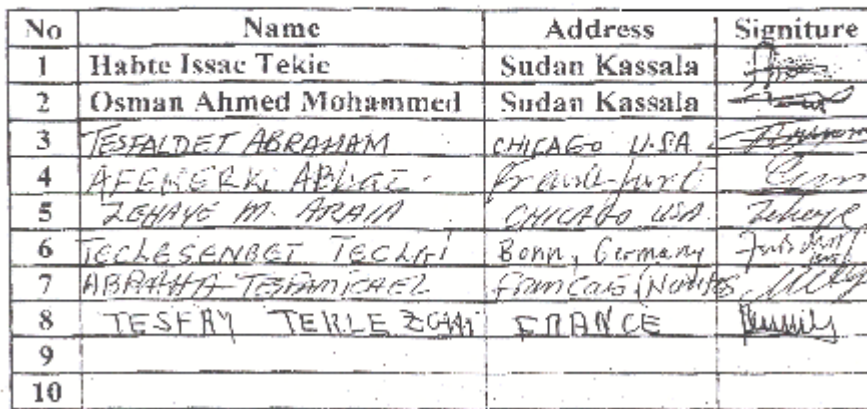 No Name Address Signiture
1 Habte Issac Tekie Sudan Kassala
2 Osman Ahmed Mohammed Sudan Kassala
3 TESFALDET ABRAHAM CHICAGO U.S.A
4 AFEWERKI Frankfurt
5 ZEHAYE M. ARAIA CHICAGO USA. Zehaye
6 TECLESENBET TECLAI Bonn, Germany
7 ABRAHA TESFAMICHEL
8 TESFAY FRANCE
9
10